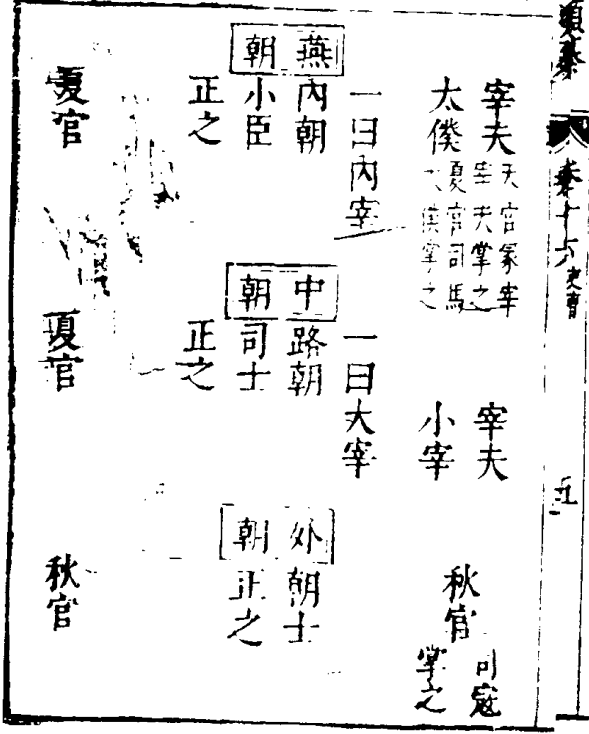 類纂 卷十六 吏曹 五
宰夫 天官冢宰
宰夫掌之
太僕 夏官司馬
太僕掌之
宰夫
小宰
秋官 司寇
掌之
一曰內宰
一曰大宰
燕朝
內朝
小臣
正之
中朝
路朝
司士
正之
外朝
朝士
正之
夏官
夏官
秋官